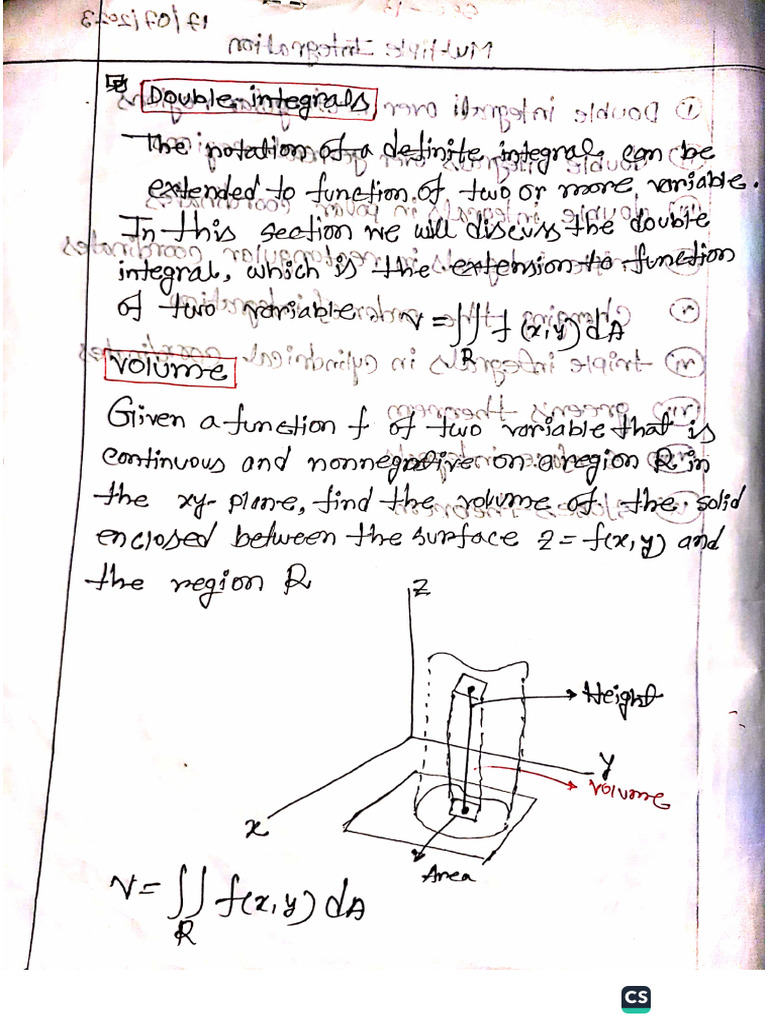 Double integrals
The notation of a definite integral, can be
extended to function of two or more, variable.
In this section we will discuss the double
integral, which is the extension to function
of two variable V = ∬ f (x,y) dA
R
Volume
Given a function f of two variable that is
continuous and nonnegative on a region R in
the xy-plane, find the volume of the solid
enclosed between the surface z = f(x,y) and
the region R
Z
Height
Y
Volume
x
Area
V = ∬ f(x,y) dA
R
CS